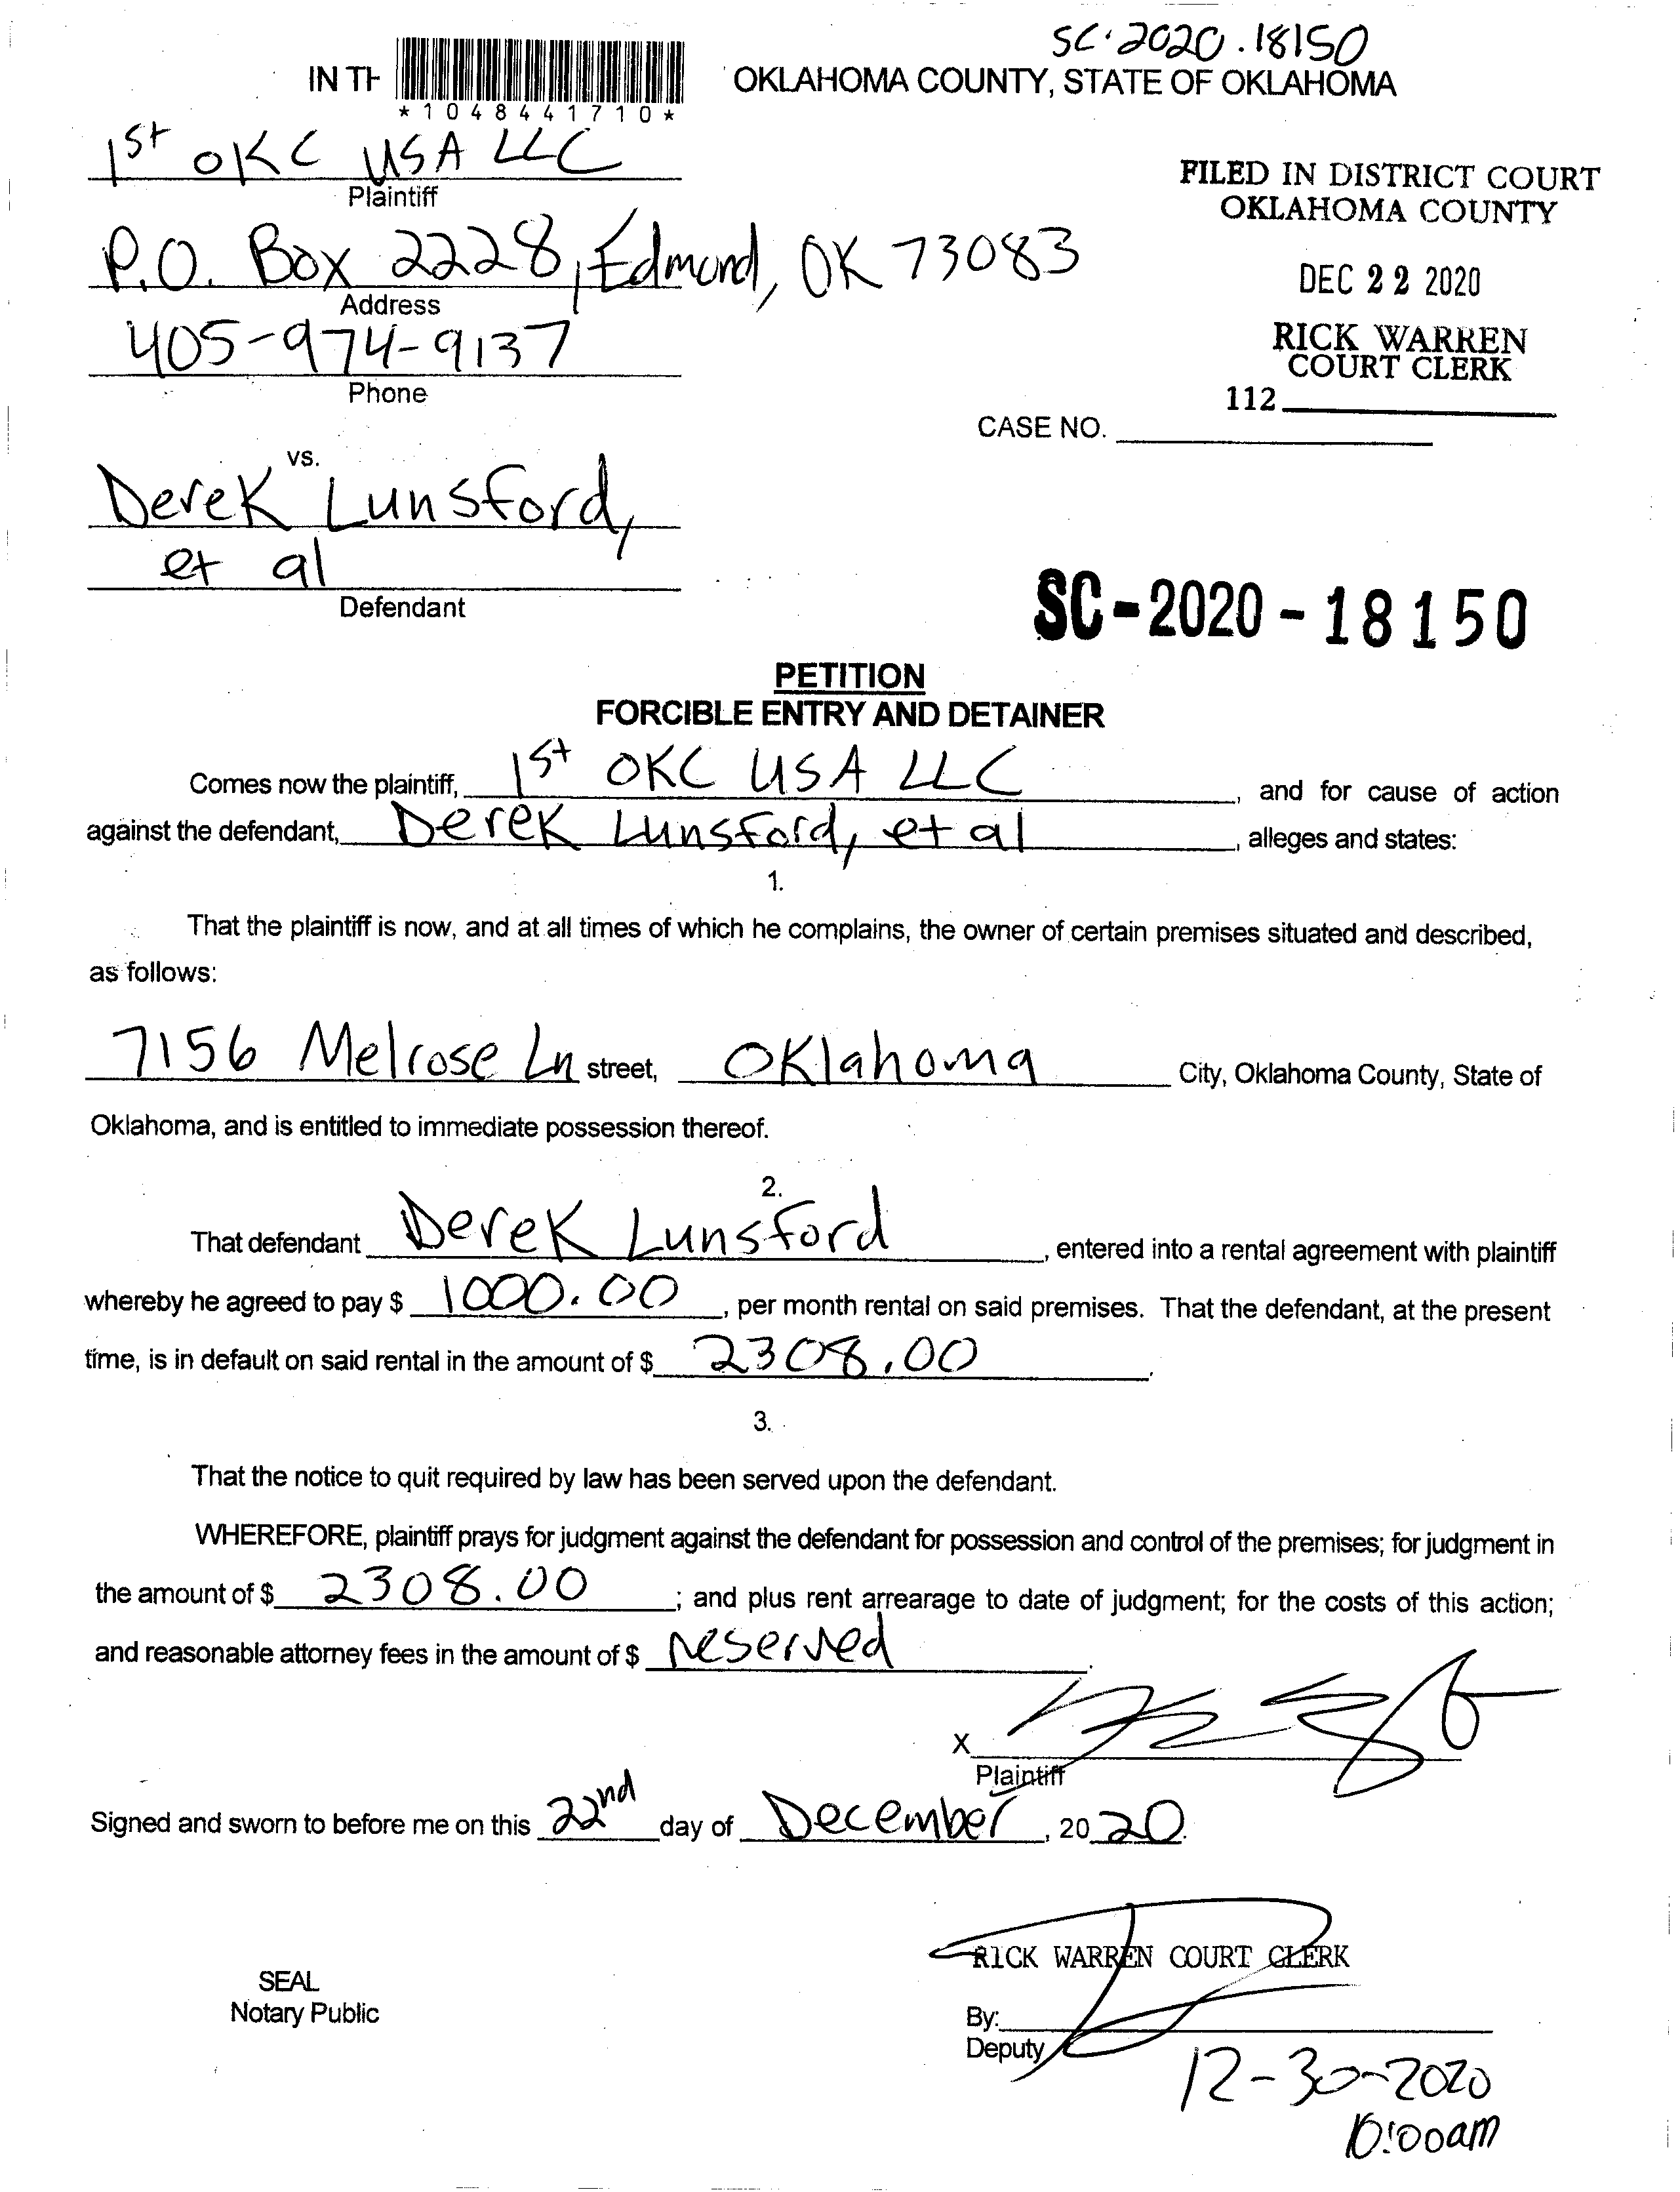 SC-2020-18150
IN TH OKLAHOMA COUNTY, STATE OF OKLAHOMA
*1048441710*
1st OKC USA LLC
Plaintiff
P.O. Box 2228, Edmond, OK 73083
Address
405-974-9137
Phone
FILED IN DISTRICT COURT
OKLAHOMA COUNTY
DEC 22 2020
RICK WARREN
COURT CLERK
112
CASE NO.
vs.
Derek Lunsford,
et al
Defendant
SC-2020-18150
PETITION
FORCIBLE ENTRY AND DETAINER
Comes now the plaintiff, 1st OKC USA LLC, and for cause of action
against the defendant, Derek Lunsford, et al, alleges and states:
1.
That the plaintiff is now, and at all times of which he complains, the owner of certain premises situated and described,
as follows:
7156 Melrose Ln street, Oklahoma City, Oklahoma County, State of
Oklahoma, and is entitled to immediate possession thereof.
2.
That defendant Derek Lunsford, entered into a rental agreement with plaintiff
whereby he agreed to pay $ 1000.00, per month rental on said premises. That the defendant, at the present
time, is in default on said rental in the amount of $ 2308.00.
3.
That the notice to quit required by law has been served upon the defendant.
WHEREFORE, plaintiff prays for judgment against the defendant for possession and control of the premises; for judgment in
the amount of $ 2308.00; and plus rent arrearage to date of judgment; for the costs of this action;
and reasonable attorney fees in the amount of $ reserved.
X
Plaintiff
Signed and sworn to before me on this 22nd day of December, 2020.
RICK WARREN COURT CLERK
SEAL
Notary Public
By:
Deputy
12-30-2020
10:00am